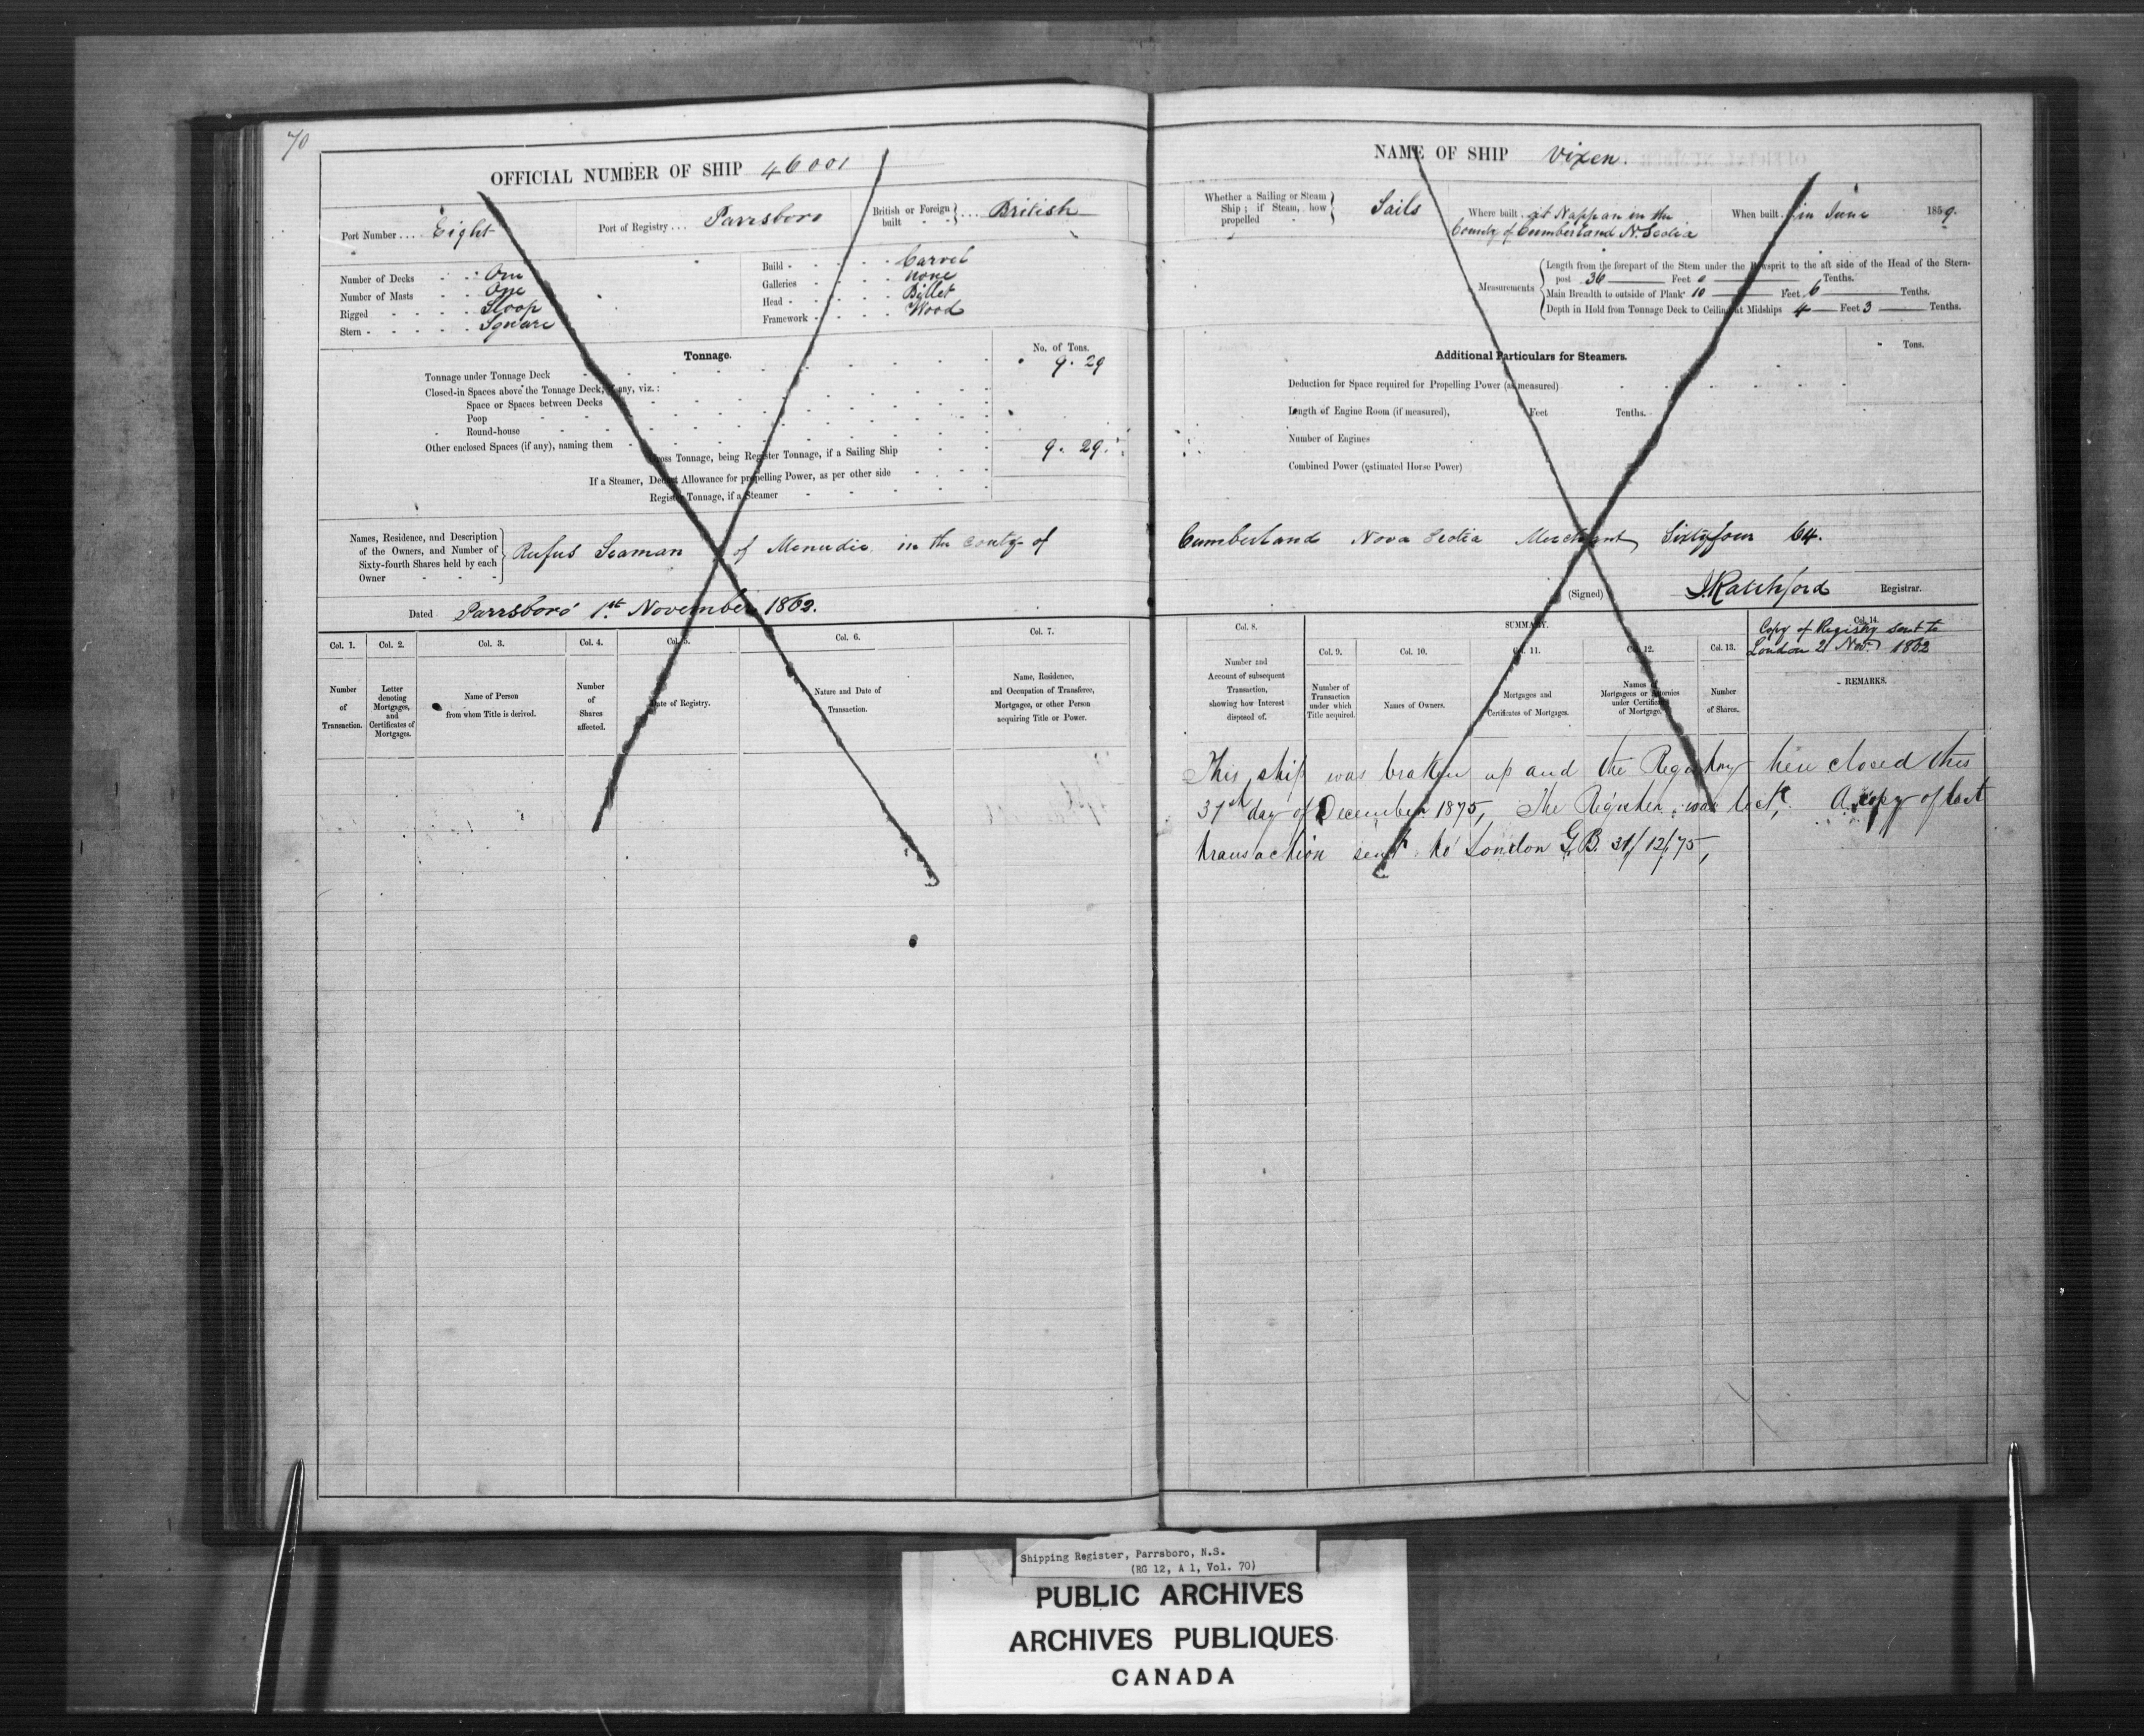 70
OFFICIAL NUMBER OF SHIP 46001
Port Number .... Eight
Port of Registry ... Parrsboro
British or Foreign built } ... British
Number of Decks - - - One
Number of Masts - - - One
Rigged - - - - Sloop
Stern - - - - Square
Build - - - - Carvel
Galleries - - - - none
Head - - - - Billet
Framework - - - - Wood
Tonnage.
No. of Tons.
Tonnage under Tonnage Deck 9. 29
Closed-in Spaces above the Tonnage Deck, if any, viz.:
Space or Spaces between Decks
Poop
Round-house
Other enclosed Spaces (if any), naming them
Gross Tonnage, being Register Tonnage, if a Sailing Ship 9. 29.
If a Steamer, Deduct Allowance for propelling Power, as per other side
Register Tonnage, if a Steamer
Names, Residence, and Description of the Owners, and Number of Sixty-fourth Shares held by each Owner } Rufus Seaman of Menudie in the County of
Dated Parrsboro' 1st November 1862.
Col. 1. Col. 2. Col. 3. Col. 4. Col. 5. Col. 6. Col. 7.
Number of Transaction.
Letter denoting Mortgages, and Certificates of Mortgages.
Name of Person from whom Title is derived.
Number of Shares affected.
Date of Registry.
Nature and Date of Transaction.
Name, Residence, and Occupation of Transferee, Mortgagee, or other Person acquiring Title or Power.
NAME OF SHIP Vixen.
Whether a Sailing or Steam Ship; if Steam, how propelled } Sails
Where built . at Nappan in the
County of Cumberland N. Scotia
When built . in June 1859.
Measurements
Length from the forepart of the Stem under the Bowsprit to the aft side of the Head of the Stern-
post 36 Feet 0 Tenths.
Main Breadth to outside of Plank 10 Feet 6 Tenths.
Depth in Hold from Tonnage Deck to Ceiling at Midships 4 Feet 3 Tenths.
Additional Particulars for Steamers.
Tons.
Deduction for Space required for Propelling Power (as measured)
Length of Engine Room (if measured), Feet Tenths.
Number of Engines
Combined Power (estimated Horse Power)
Cumberland Nova Scotia Merchant Sixtyfour 64.
(Signed) J. Ratchford Registrar.
Col. 8. SUMMARY. Col. 14.
Col. 9. Col. 10. Col. 11. Col. 12. Col. 13.
Copy of Registry sent to
London 21 Nov. 1862
Number and Account of subsequent Transaction, showing how Interest disposed of.
Number of Transaction under which Title acquired.
Names of Owners.
Mortgages and Certificates of Mortgages.
Names of Mortgagees or Attornies under Certificate of Mortgage.
Number of Shares.
REMARKS.
This ship was broken up and the Registry here closed this
31st day of December 1875, The Register was lost, A copy of last
transaction sent to London G.B. 31/12/75,
Shipping Register, Parrsboro, N.S.
(RG 12, A 1, Vol. 70)
PUBLIC ARCHIVES
ARCHIVES PUBLIQUES
CANADA